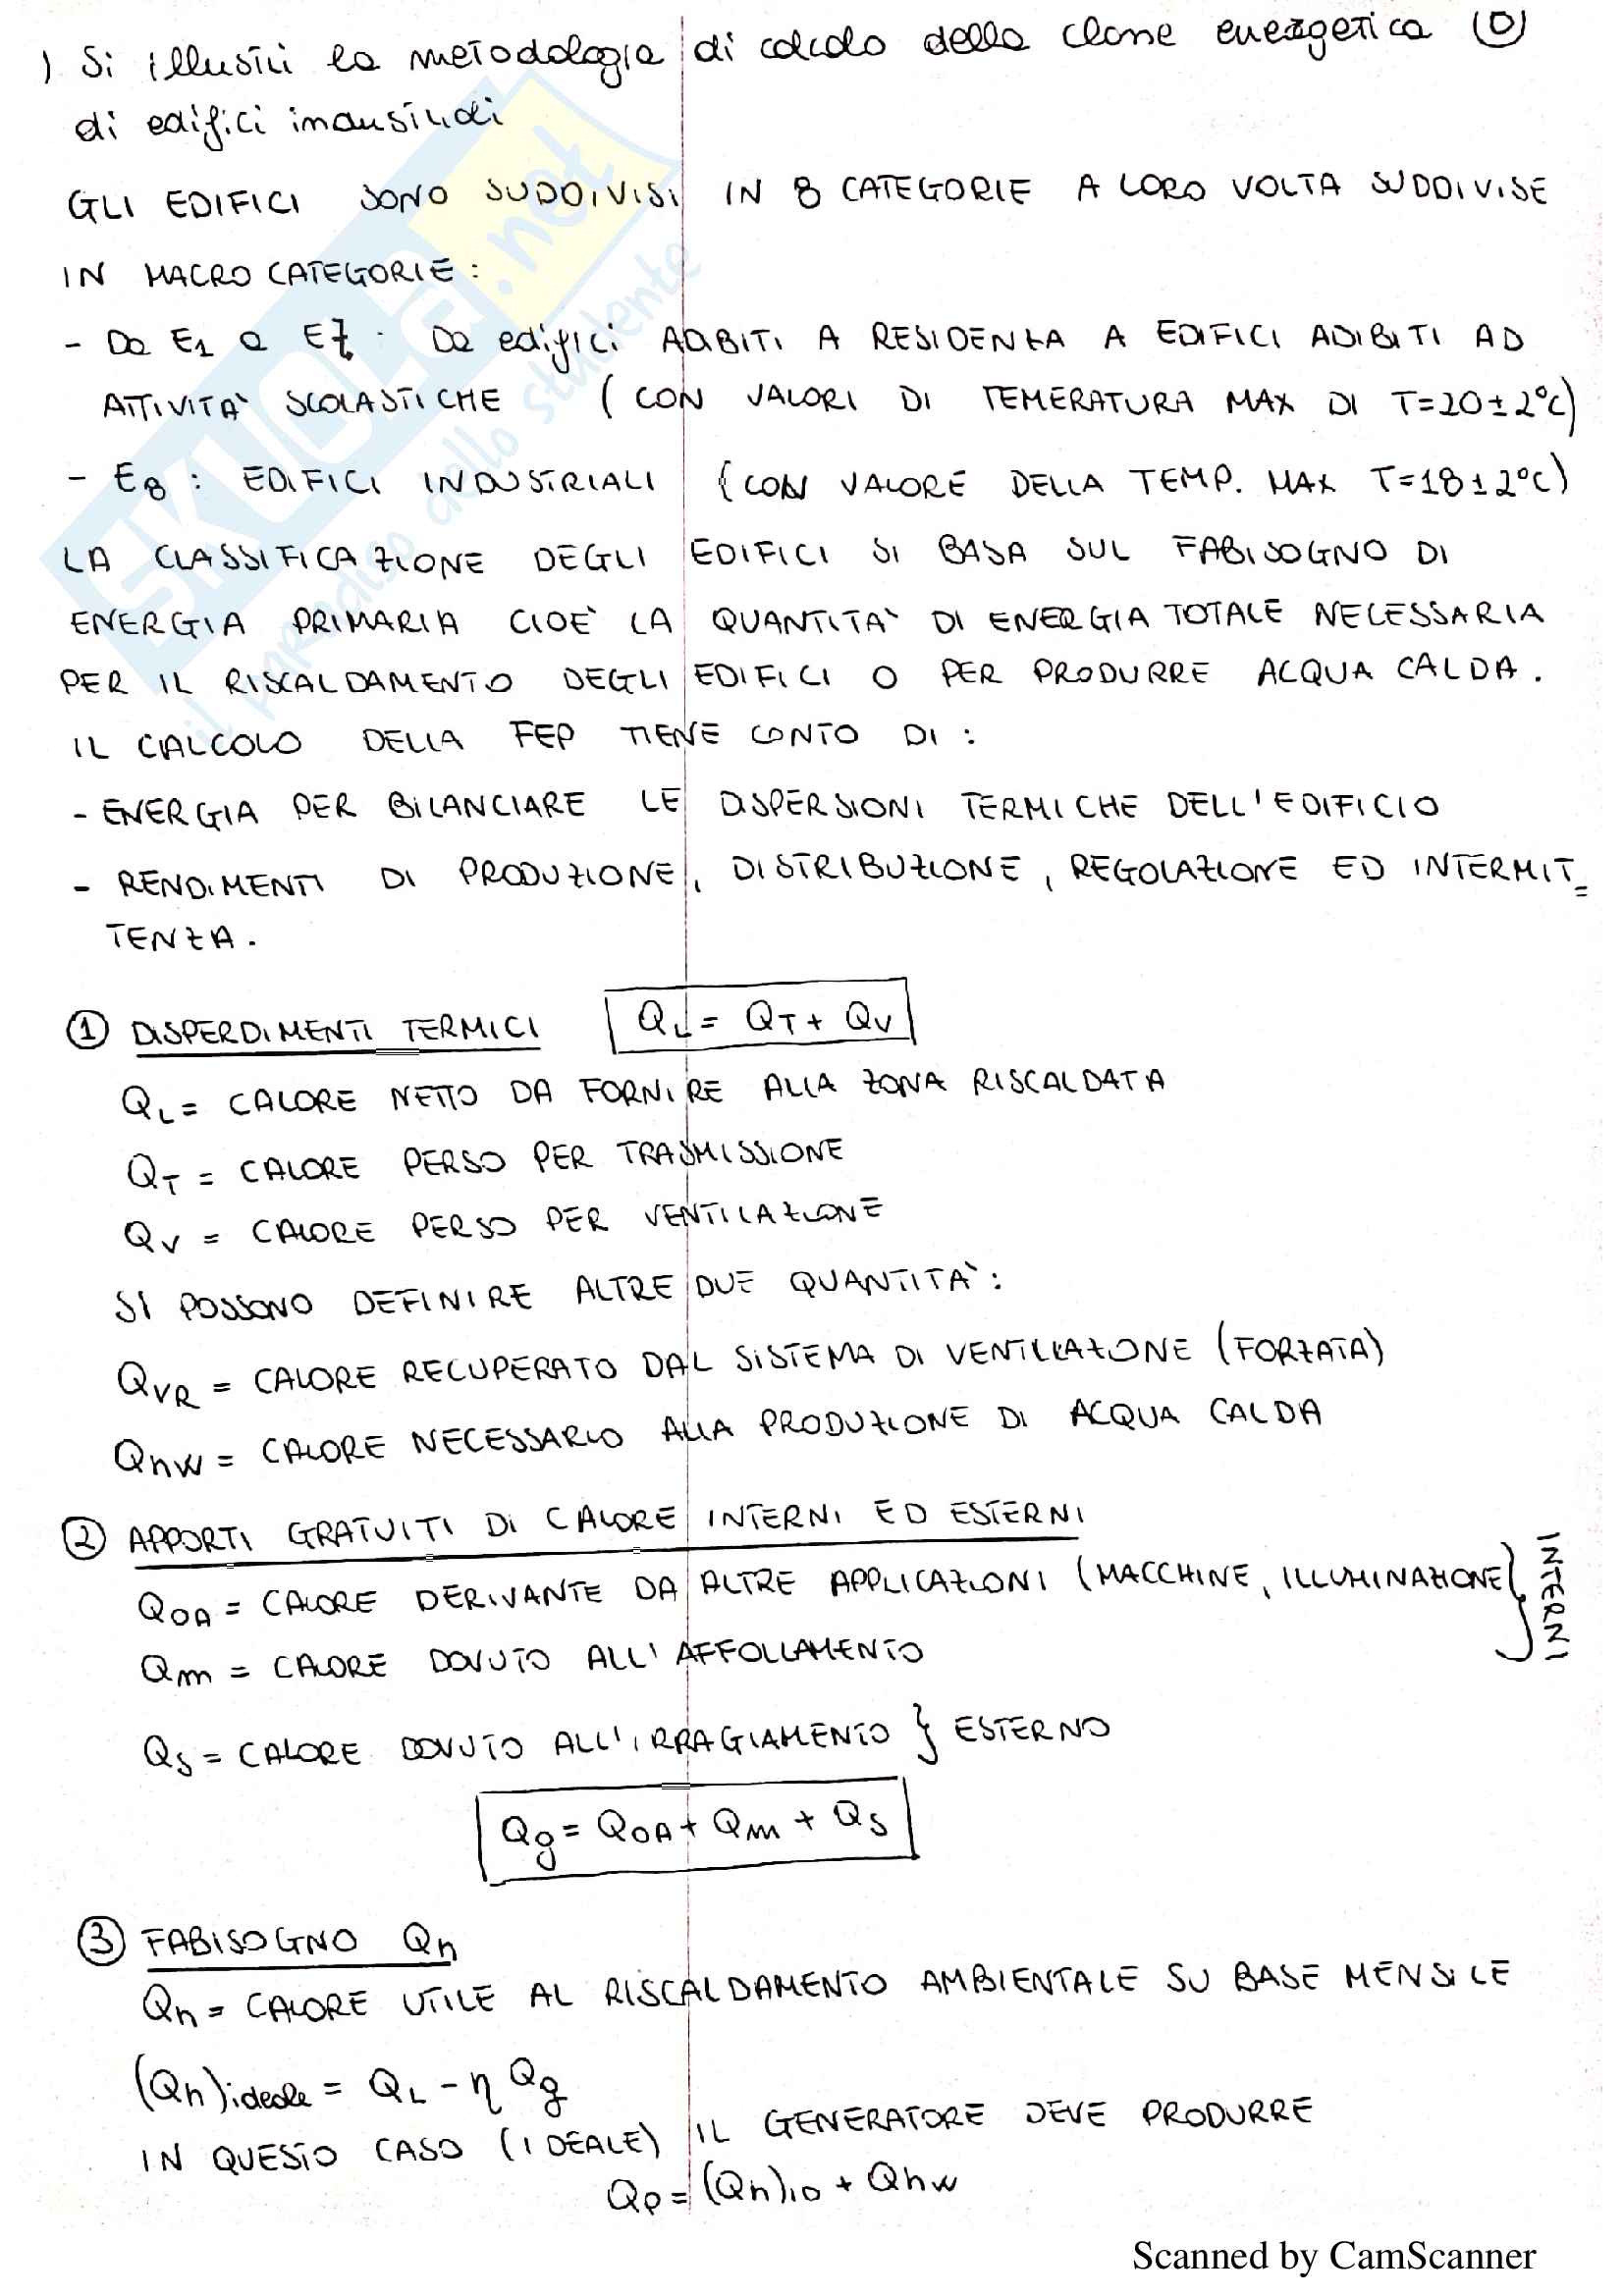 ) Si illustri la metodologia di calcolo della classe energetica (D)
di edifici industriali
GLI EDIFICI SONO SUDDIVISI IN 8 CATEGORIE A LORO VOLTA SUDDIVISE
IN MACRO CATEGORIE:
- Da E1 a E7: Da edifici ADIBITI A RESIDENZA A EDIFICI ADIBITI AD
ATTIVITA' SCOLASTICHE (CON VALORI DI TEMERATURA MAX DI T=20±2°C)
- E8: EDIFICI INDUSTRIALI (CON VALORE DELLA TEMP. MAX T=18±2°C)
LA CLASSIFICAZIONE DEGLI EDIFICI SI BASA SUL FABISOGNO DI
ENERGIA PRIMARIA CIOE' LA QUANTITA' DI ENERGIA TOTALE NECESSARIA
PER IL RISCALDAMENTO DEGLI EDIFICI O PER PRODURRE ACQUA CALDA.
IL CALCOLO DELLA FEP TIENE CONTO DI:
- ENERGIA PER BILANCIARE LE DISPERSIONI TERMICHE DELL'EDIFICIO
- RENDIMENTI DI PRODUZIONE, DISTRIBUZIONE, REGOLAZIONE ED INTERMIT=
TENZA.
① DISPERDIMENTI TERMICI QL = QT + QV
QL = CALORE NETTO DA FORNIRE ALLA ZONA RISCALDATA
QT = CALORE PERSO PER TRASMISSIONE
QV = CALORE PERSO PER VENTILAZIONE
SI POSSONO DEFINIRE ALTRE DUE QUANTITA':
QVR = CALORE RECUPERATO DAL SISTEMA DI VENTILLAZIONE (FORZATA)
Qhw = CALORE NECESSARIO ALLA PRODUZIONE DI ACQUA CALDA
② APPORTI GRATUITI DI CALORE INTERNI ED ESTERNI
QOA = CALORE DERIVANTE DA ALTRE APPLICAZIONI (MACCHINE, ILLUMINAZIONE) } INTERNI
Qm = CALORE DOVUTO ALL'AFFOLLAMENTO
QS = CALORE DOVUTO ALL'IRRAGIAMENTO } ESTERNO
Qg = QOA + Qm + QS
③ FABISOGNO Qh
Qh = CALORE UTILE AL RISCALDAMENTO AMBIENTALE SU BASE MENSILE
(Qh)ideale = QL - η Qg
IN QUESTO CASO (IDEALE) IL GENERATORE DEVE PRODURRE
Qp = (Qh)ID + Qhw
SKUOLA.net
il paradiso dello studente
Scanned by CamScanner